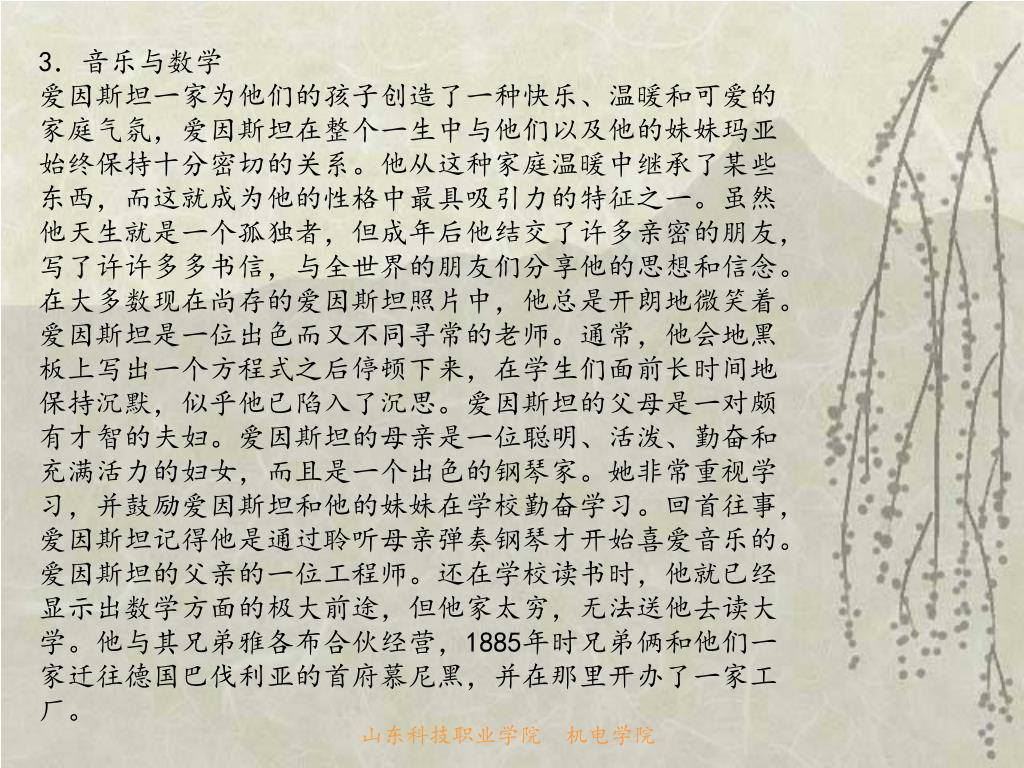 3．音乐与数学
爱因斯坦一家为他们的孩子创造了一种快乐、温暖和可爱的
家庭气氛，爱因斯坦在整个一生中与他们以及他的妹妹玛亚
始终保持十分密切的关系。他从这种家庭温暖中继承了某些
东西，而这就成为他的性格中最具吸引力的特征之一。虽然
他天生就是一个孤独者，但成年后他结交了许多亲密的朋友，
写了许许多多书信，与全世界的朋友们分享他的思想和信念。
在大多数现在尚存的爱因斯坦照片中，他总是开朗地微笑着。
爱因斯坦是一位出色而又不同寻常的老师。通常，他会地黑
板上写出一个方程式之后停顿下来，在学生们面前长时间地
保持沉默，似乎他已陷入了沉思。爱因斯坦的父母是一对颇
有才智的夫妇。爱因斯坦的母亲是一位聪明、活泼、勤奋和
充满活力的妇女，而且是一个出色的钢琴家。她非常重视学
习，并鼓励爱因斯坦和他的妹妹在学校勤奋学习。回首往事，
爱因斯坦记得他是通过聆听母亲弹奏钢琴才开始喜爱音乐的。
爱因斯坦的父亲的一位工程师。还在学校读书时，他就已经
显示出数学方面的极大前途，但他家太穷，无法送他去读大
学。他与其兄弟雅各布合伙经营，1885年时兄弟俩和他们一
家迁往德国巴伐利亚的首府慕尼黑，并在那里开办了一家工
厂。
山东科技职业学院　机电学院